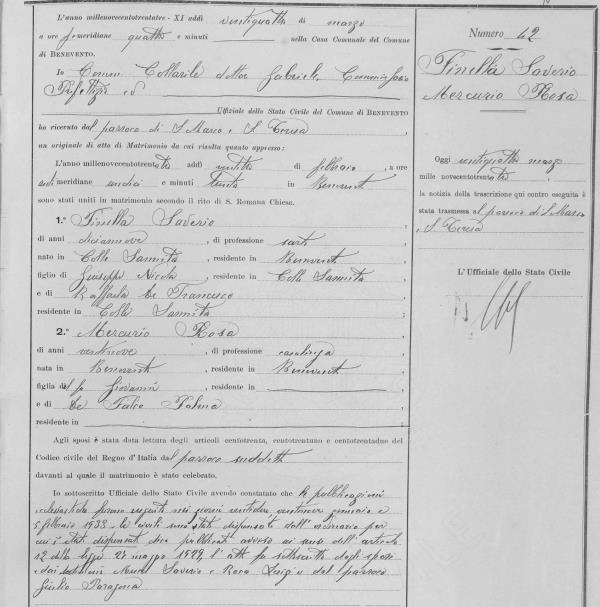 L'anno millenovecentotrentatre - XI addì ventiquattro di marzo
a ore meridiane quattro e minuti nella Casa Comunale del Comune
di BENEVENTO.
Io Comm. Collarile dottor Gabriele Commissario
Prefettizio ed
Ufficiale dello Stato Civile del Comune di BENEVENTO
ho ricevuto dal parroco di S. Marco e S. Teresa
un originale di atto di Matrimonio da cui risulta quanto appresso:
L'anno millenovecentotrentatre addì ventotto di febbraio, a ore
antimeridiane undici e minuti trenta in Benevento
sono stati uniti in matrimonio secondo il rito di S. Romana Chiesa.
1.° Finella Saverio
di anni diciannove, di professione sarto
nato in Colle Sannita, residente in Benevento
figlio di Giuseppe Nicola, residente in Colle Sannita
e di Raffaela De Francesco
residente in Colle Sannita
2.° Mercurio Rosa
di anni ventinove, di professione casalinga
nata in Benevento, residente in Benevento
figlia del fu Giovanni, residente in
e di De Falco Palma
residente in
Agli sposi è stata data lettura degli articoli centotrenta, centotrentuno e centotrentadue del
Codice civile del Regno d'Italia dal parroco suddetto
davanti al quale il matrimonio è stato celebrato.
Io sottoscritto Ufficiale dello Stato Civile avendo constatato che le pubblicazioni
ecclesiastiche furono eseguite nei giorni ventidue ventinove gennaio e
5 febbraio 1933 - le civili sono state dispensate dall'
dispensati due pubblicati avviso ai sensi dell'articolo
12 della legge 27 maggio 1929, l'atto fu sottoscritto dagli sposi
e dai testimoni Saverio e Luigi e dal parroco
Giulio Paragona
Numero 42
Finella Saverio
Mercurio Rosa
Oggi ventiquattro marzo
mille novecentotrentatre
la notizia della trascrizione qui contro eseguita è
stata trasmessa al parroco di S. Marco
e S. Teresa
L'Ufficiale dello Stato Civile